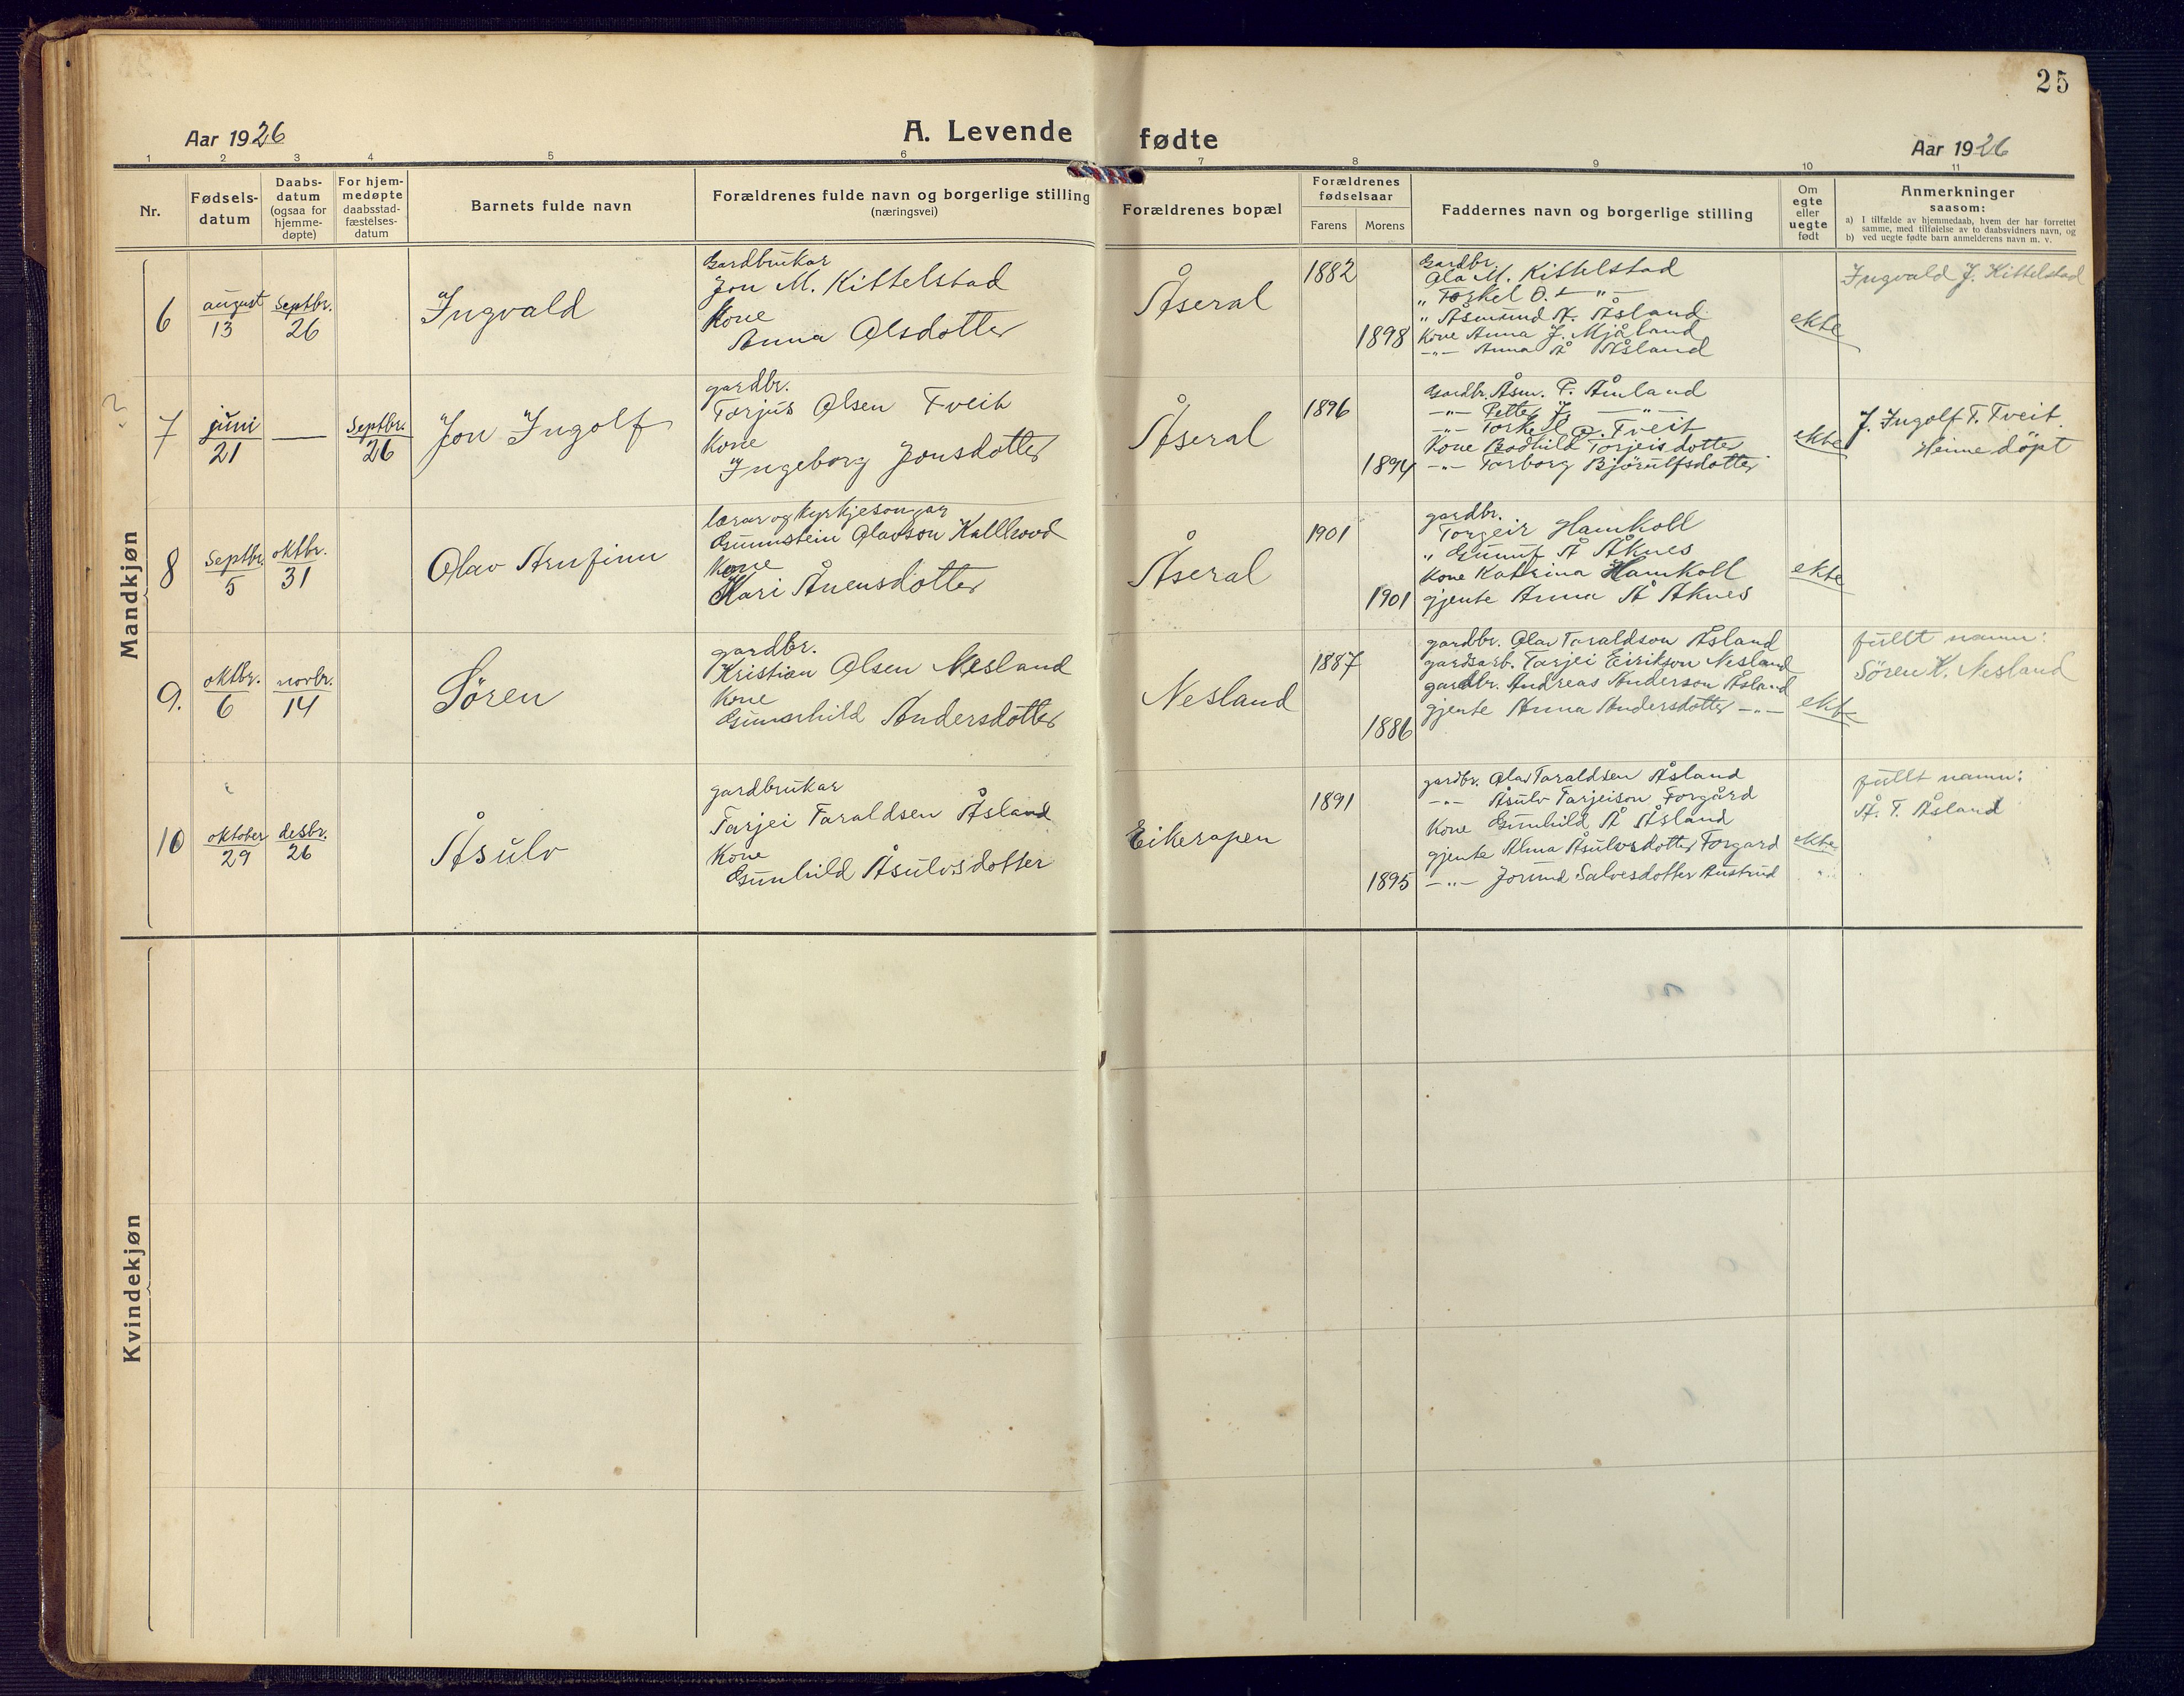 25
Aar 1926
A. Levende fødte
Aar 1926
1 2 3 4 5 6 7 8 9 10 11
Nr.
Fødsels-
datum
Daabs-
datum
(ogsaa for
hjemme-
døpte)
For hjem-
medøpte
daabsstad-
fæstelses-
datum
Barnets fulde navn
Forældrenes fulde navn og borgerlige stilling
(næringsvei)
Forældrenes bopæl
Forældrenes
fødselsaar
Farens Morens
Faddernes navn og borgerlige stilling
Om
egte
eller
uegte
født
Anmerkninger
saasom:
a) I tilfælde av hjemmedaab, hvem der har forrettet
samme, med tilføielse av to daabsvidners navn, og
b) ved uegte fødte barn anmelderens navn m. v.
Mandkjøn
6
august
13
Septbr.
26
Ingvald
Gardbrukar
Jon M. Kittelstad
Kone
Anna Olsdotter
Åseral
1882
1898
Gardbr.
Ola M. Kittelstad
„ Torkel O. — „ —
„ Åsmund A. Åsland
Kone Anna J. Mjåland
—„— Anna Å Åsland
ekte
Ingvald J. Kittelstad
?
7
juni
21
—
Septbr.
26
Jon Ingolf
gardbr.
Torjus Olsen Tveit
Kone
Ingeborg Jonsdotter
Åseral
1896
1894
Gardbr. Åsm. P. Åmland
—„— Petter J. —„—
—„— Torkel O. Tveit
Kone Bodhild Torjeisdotter
—„— Torborg Bjørulfsdotter
ekte
J. Ingolf T. Tveit.
Heime döpt
8
Septbr.
5
oktbr.
31
Olav Arnfinn
lærar og kyrkjesongar
Gunnstein Olavson Kallhovd
Kone
Kari Ånensdotter
Åseral
1901
1901
gardbr.
Torgeir Hamkoll
„ Gunnuf Å Åknes
Kone Katrina Hamkoll
gjente Anna Å Åknes
ekte
9.
oktbr.
6
novbr.
14
Sören
gardbr.
Kristian Olsen Nesland
Kone
Gunnhild Andersdotter
Nesland
1887
1886
gardbr. Olav Taraldson Åsland
gardsarb. Tarjei Eirikson Nesland
gardbr. Andreas Anderson Åsland
gjente Anna Andersdotter —„—
ekte
fullt namn:
Sören K. Nesland
10
oktober
29
desbr.
26
Åsulv
gardbrukar
Tarjei Taraldsen Åsland
Kone
Gunhild Åsulvsdotter
Eikerapen
1891
1895
gardbr. Olav Taraldsen Åsland
—„— Åsulv Tarjeison Forgård
Kone Gunhild Å Åsland
gjente Alma Åsulvsdotter Forgard
—„— Jorund Salvesdotter Austrud
ekte
fullt namn:
Å. T. Åsland
Kvindekjøn